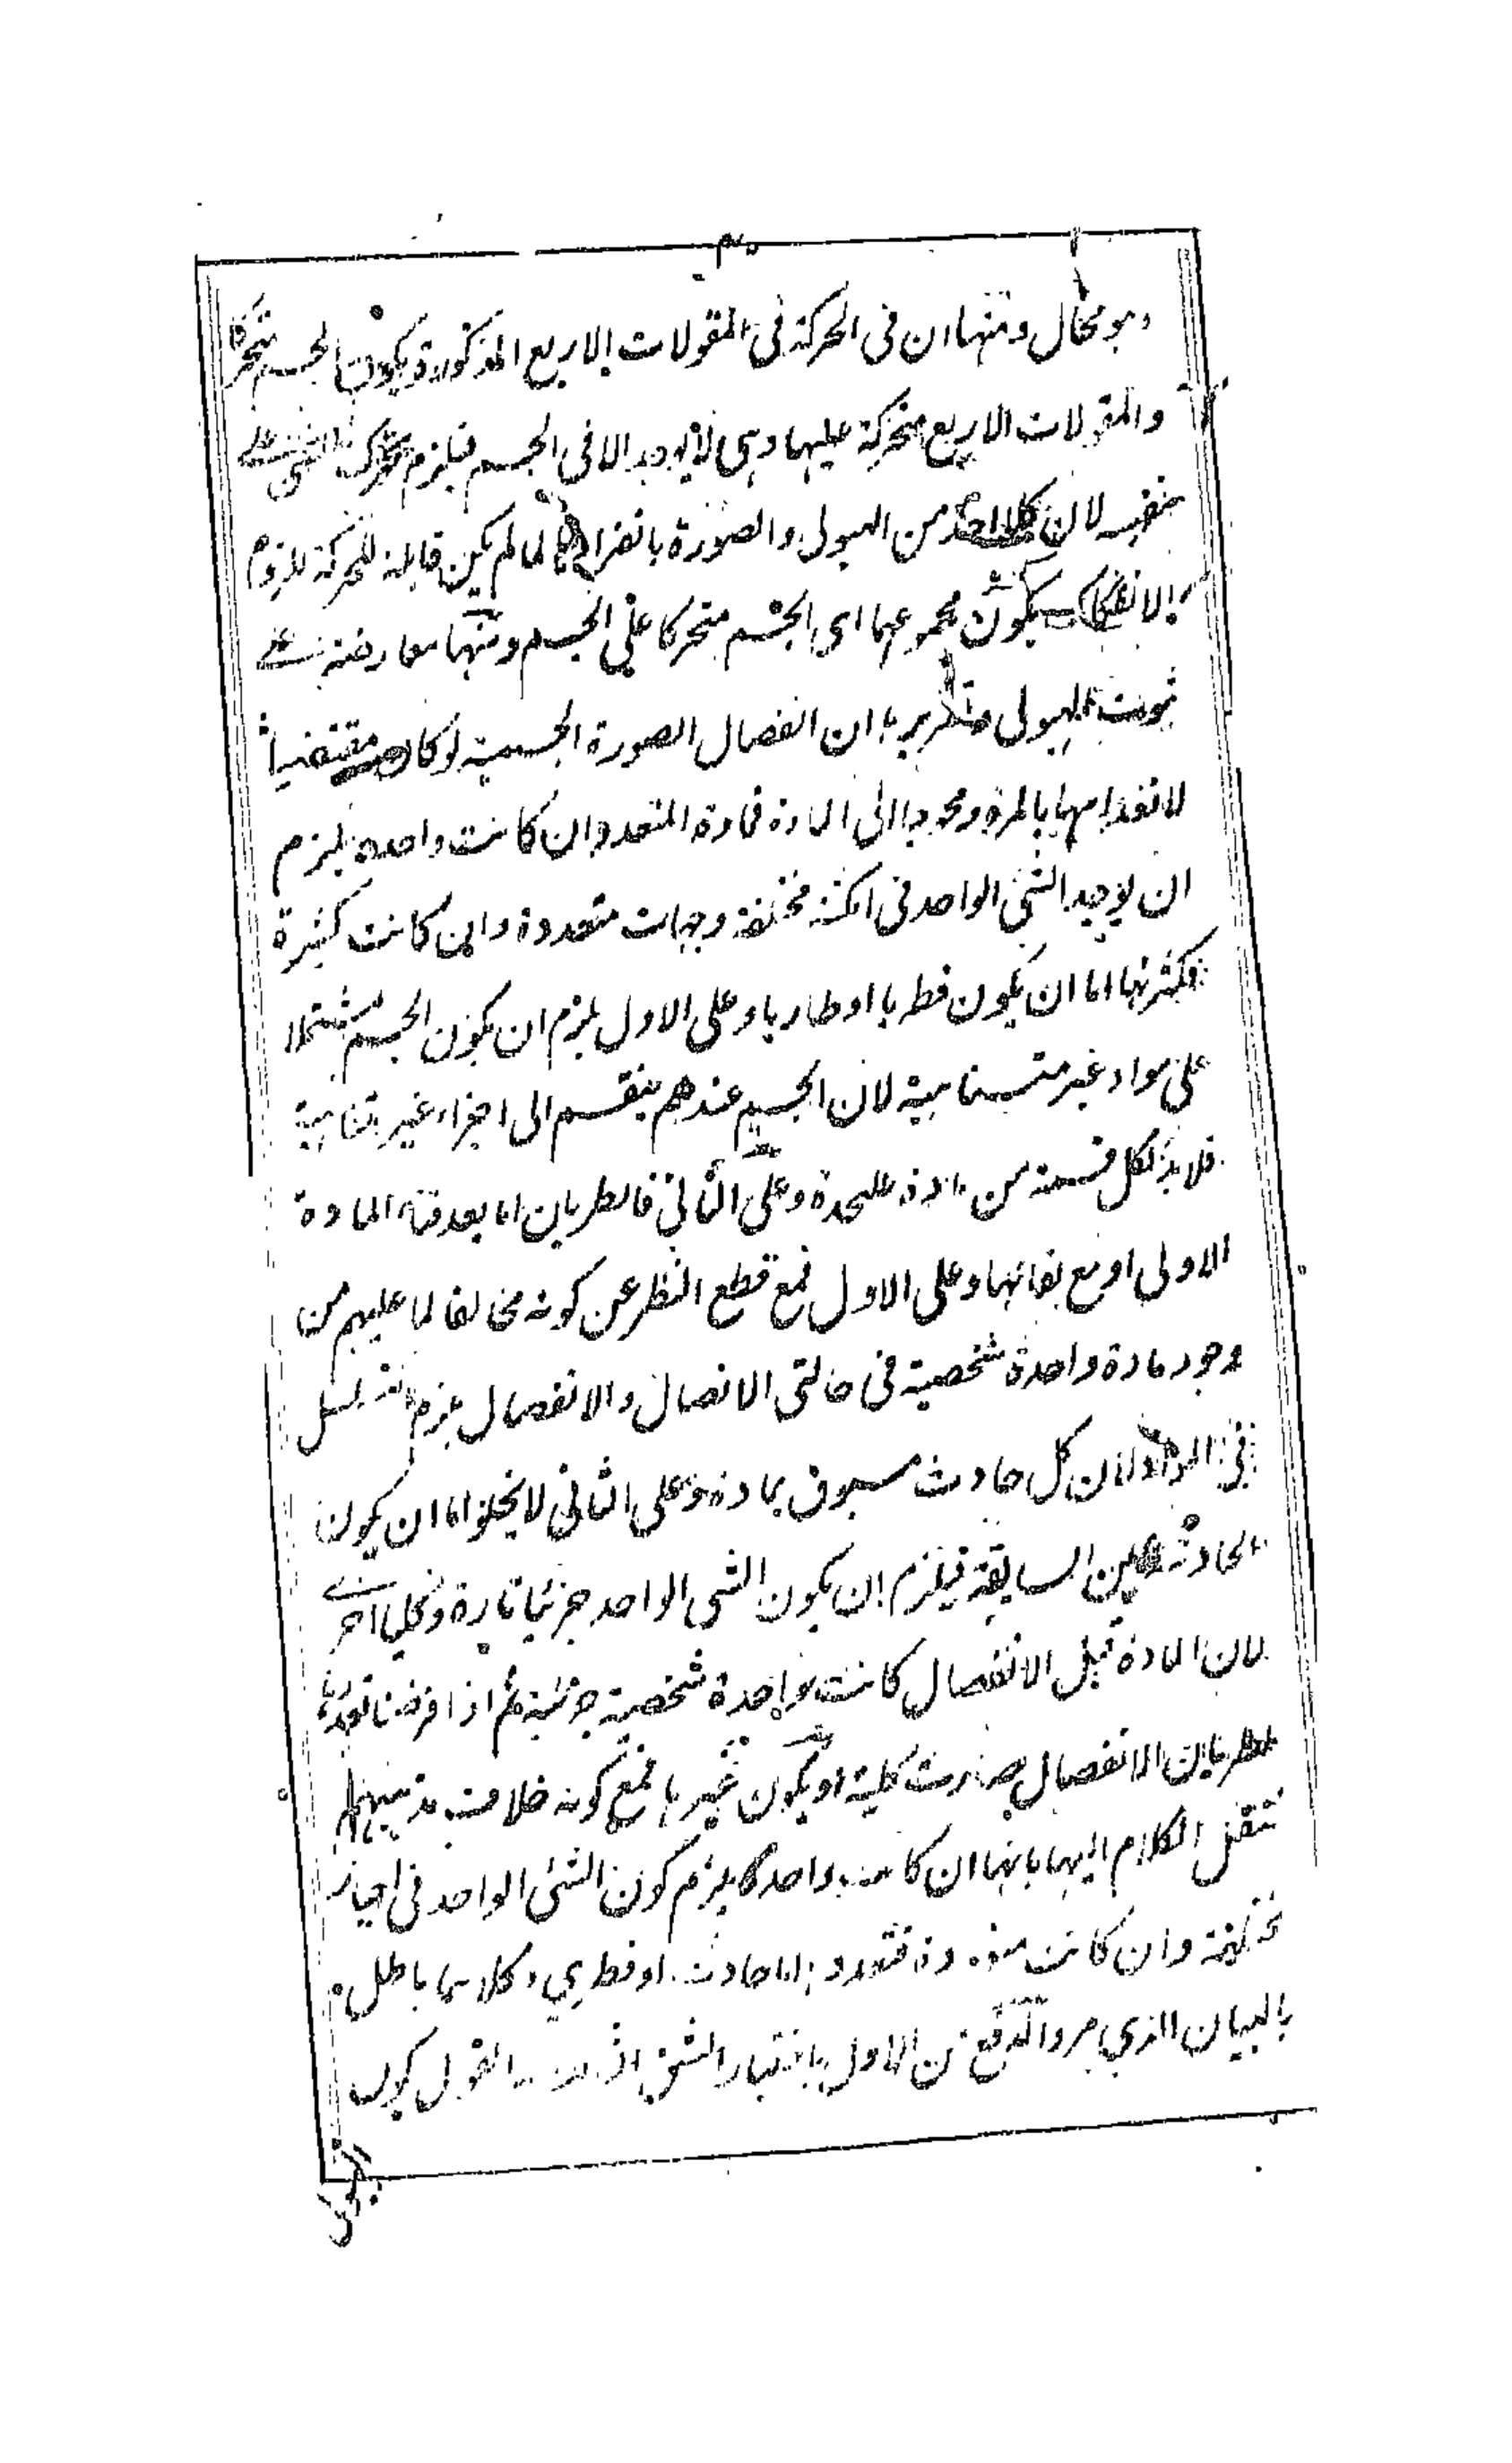 وهو محال ومنها ان فى الحركة فى المقولات الاربع المذكورة يكون الجسم متحركا
والمقولات الاربع متحركة عليها وهى لا يوجد الا فى الجسم فيلزم تحرك الشئ على
نفسه لان كل واحد من الهيولى والصورة بانفرادها لما لم يكن قابلة للحركة للزوم
الانفكاك يكون مجموعهما اى الجسم متحركا على الجسم ومنها معارضة على
ثبوت الهيولى وتقريرها ان انفصال الصورة الجسمية لو كان مقتضيا
لانعدامها بالمرة ومحوجا الى المادة فمادة المتعدد ان كانت واحدة يلزم
ان يوجد الشئ الواحد فى امكنة مختلفة وجهات متعددة وان كانت كثيرة
فكثرتها اما ان يكون فطريا او طاريا وعلى الاول يلزم ان يكون الجسم مشتملا
على مواد غير متناهية لان الجسم عندهم ينقسم الى اجزاء غير متناهية
فلا بد لكل قسمة من مادة عليحدة وعلى الثانى فالطريان اما بعد فناء المادة
الاولى او مع بقائها وعلى الاول فمع قطع النظر عن كونه مخالفا لما عليهم من
وجود مادة واحدة شخصية فى حالتى الاتصال والانفصال يلزم التسلسل
فى المواد لان كل حادث مسبوق بمادة وعلى الثانى لا يخلو اما ان يكون
الحادثة عين السابقة فيلزم ان يكون الشئ الواحد جزئيا تارة وكليا اخرى
لان المادة قبل الانفصال كانت واحدة شخصية جزئية ثم اذا فرضنا تعددها
لطريان الانفصال صارت كلية او يكون غيرها فمع كونه خلاف مذهبهم
ننقل الكلام اليها بانها ان كانت واحدة يلزم كون الشئ الواحد فى احياز
مختلفة وان كانت متعددة فتعددها اما حادث او فطرى وكلاهما باطل
بالبيان الذي مر والدفع عن الاول باختيار الشق القول بكون